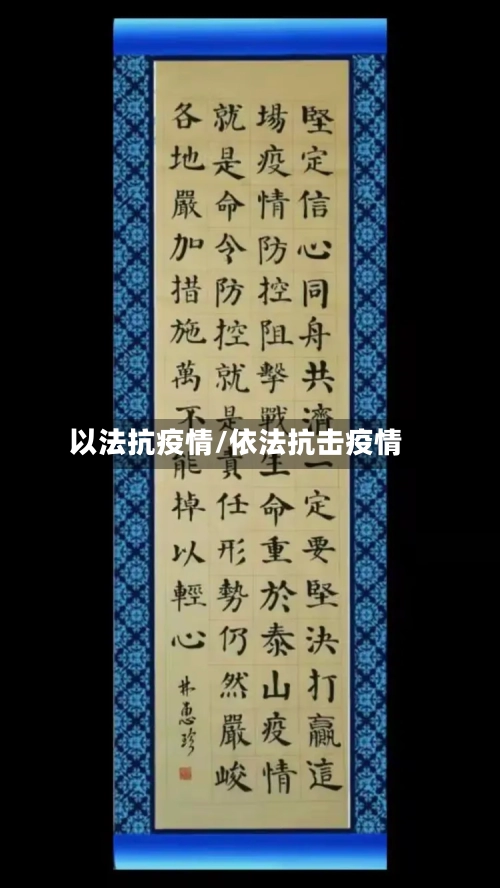 堅定信心同舟共濟一定要堅決打贏這
場疫情防控阻擊戰生命重於泰山疫情
就是命令防控就是責任形勢仍然嚴峻
各地嚴加措施萬不能掉以輕心
林惠珍
以法抗疫情/依法抗击疫情